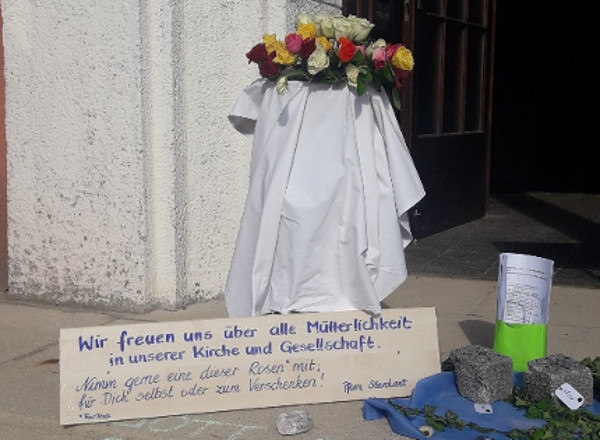 Wir freuen uns über alle Mütterlichkeit
in unserer Kirche und Gesellschaft.
Nimm gerne eine dieser Rosen mit;
für Dich selbst oder zum Verschenken!